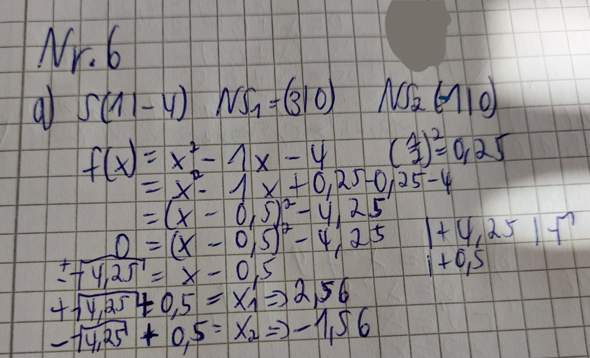 Nr. 6
a) S(1|-4) NS₁=(3|0) NS₂(-1|0)
f(x) = x² - 1x - 4 (1/2)² = 0,25
= x² - 1x + 0,25 - 0,25 - 4
= (x - 0,5)² - 4,25
0 = (x - 0,5)² - 4,25 |+4,25 |√
±√4,25 = x - 0,5 |+0,5
+√4,25 + 0,5 = x₁ => 2,56
-√4,25 + 0,5 = x₂ => -1,56